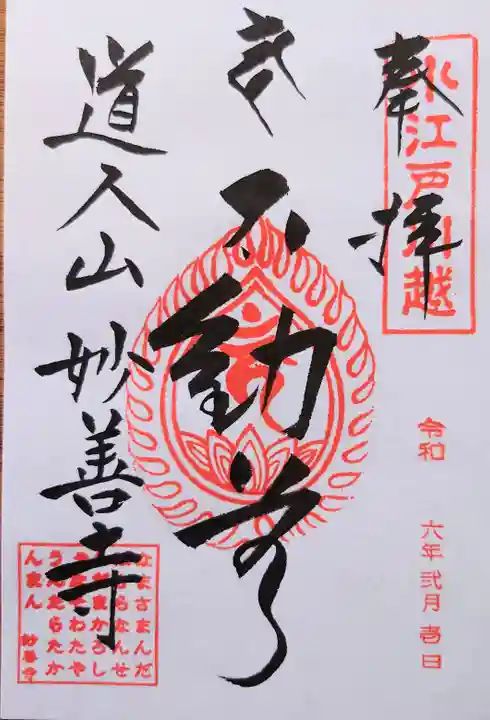 奉拝
小江戸川越
令和 六年弐月壱日
不動尊
道人山 妙善寺
なまさまんだ
らなんせ
まかろし
わたや
うんたらたか
んまん
妙善寺